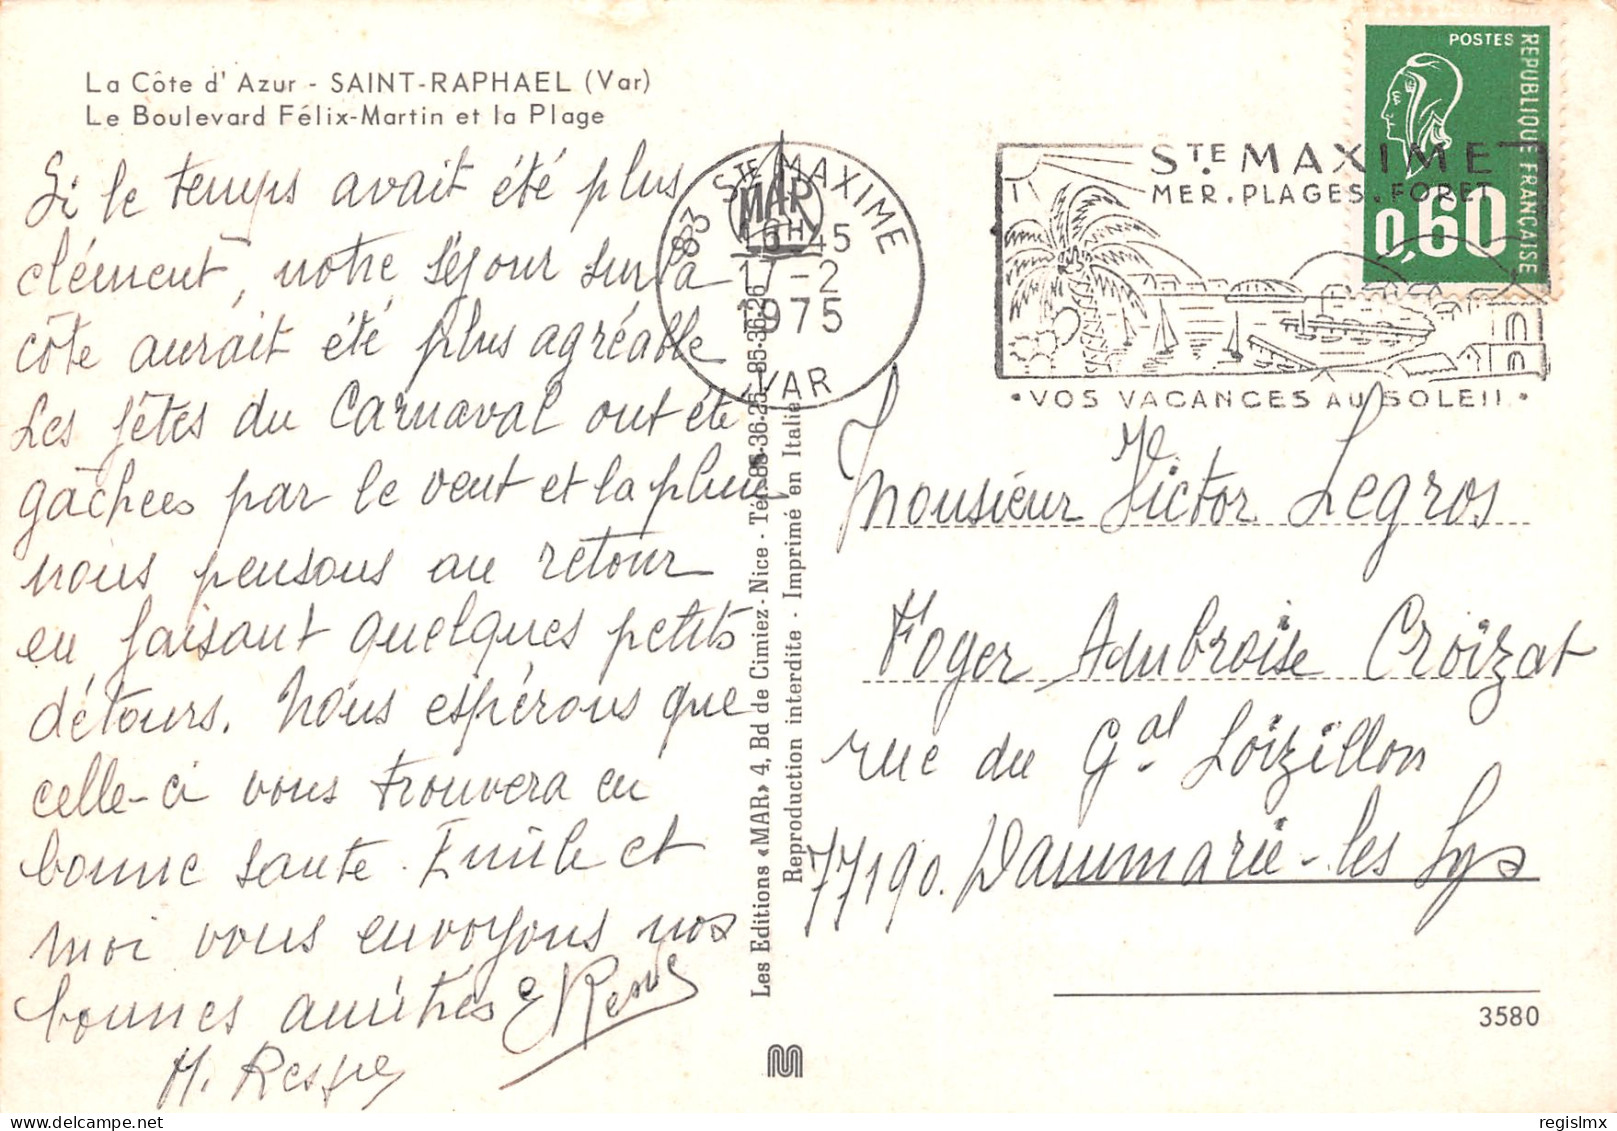 La Côte d'Azur - SAINT-RAPHAEL (Var)
Le Boulevard Félix-Martin et la Plage
Si le temps avait été plus
clément, notre séjour sur la
côte aurait été plus agréable
Les fêtes du Carnaval ont été
gâchées par le vent et la pluie
nous pensons au retour
en faisant quelques petits
détours. Nous espérons que
celle-ci vous trouvera en
bonne santé. Emile et
moi vous envoyons nos
bonnes amitiés
H.
Les Editions «MAR» 4, Bd de Cimiez - Nice - Tél. 85-36-25 - 85-36-26
Reproduction interdite - Imprimé en Italie
MAR
83 STE MAXIME
16H45
17-2
1975
VAR
STE MAXIME
MER. PLAGES. FORET
• VOS VACANCES AU SOLEIL •
POSTES
REPUBLIQUE FRANÇAISE
0,60
Monsieur Victor Legros
Foyer Ambroise Croizat
rue du Gal Loizillon
77190. Dammarie-les Lys
3580
regislmx